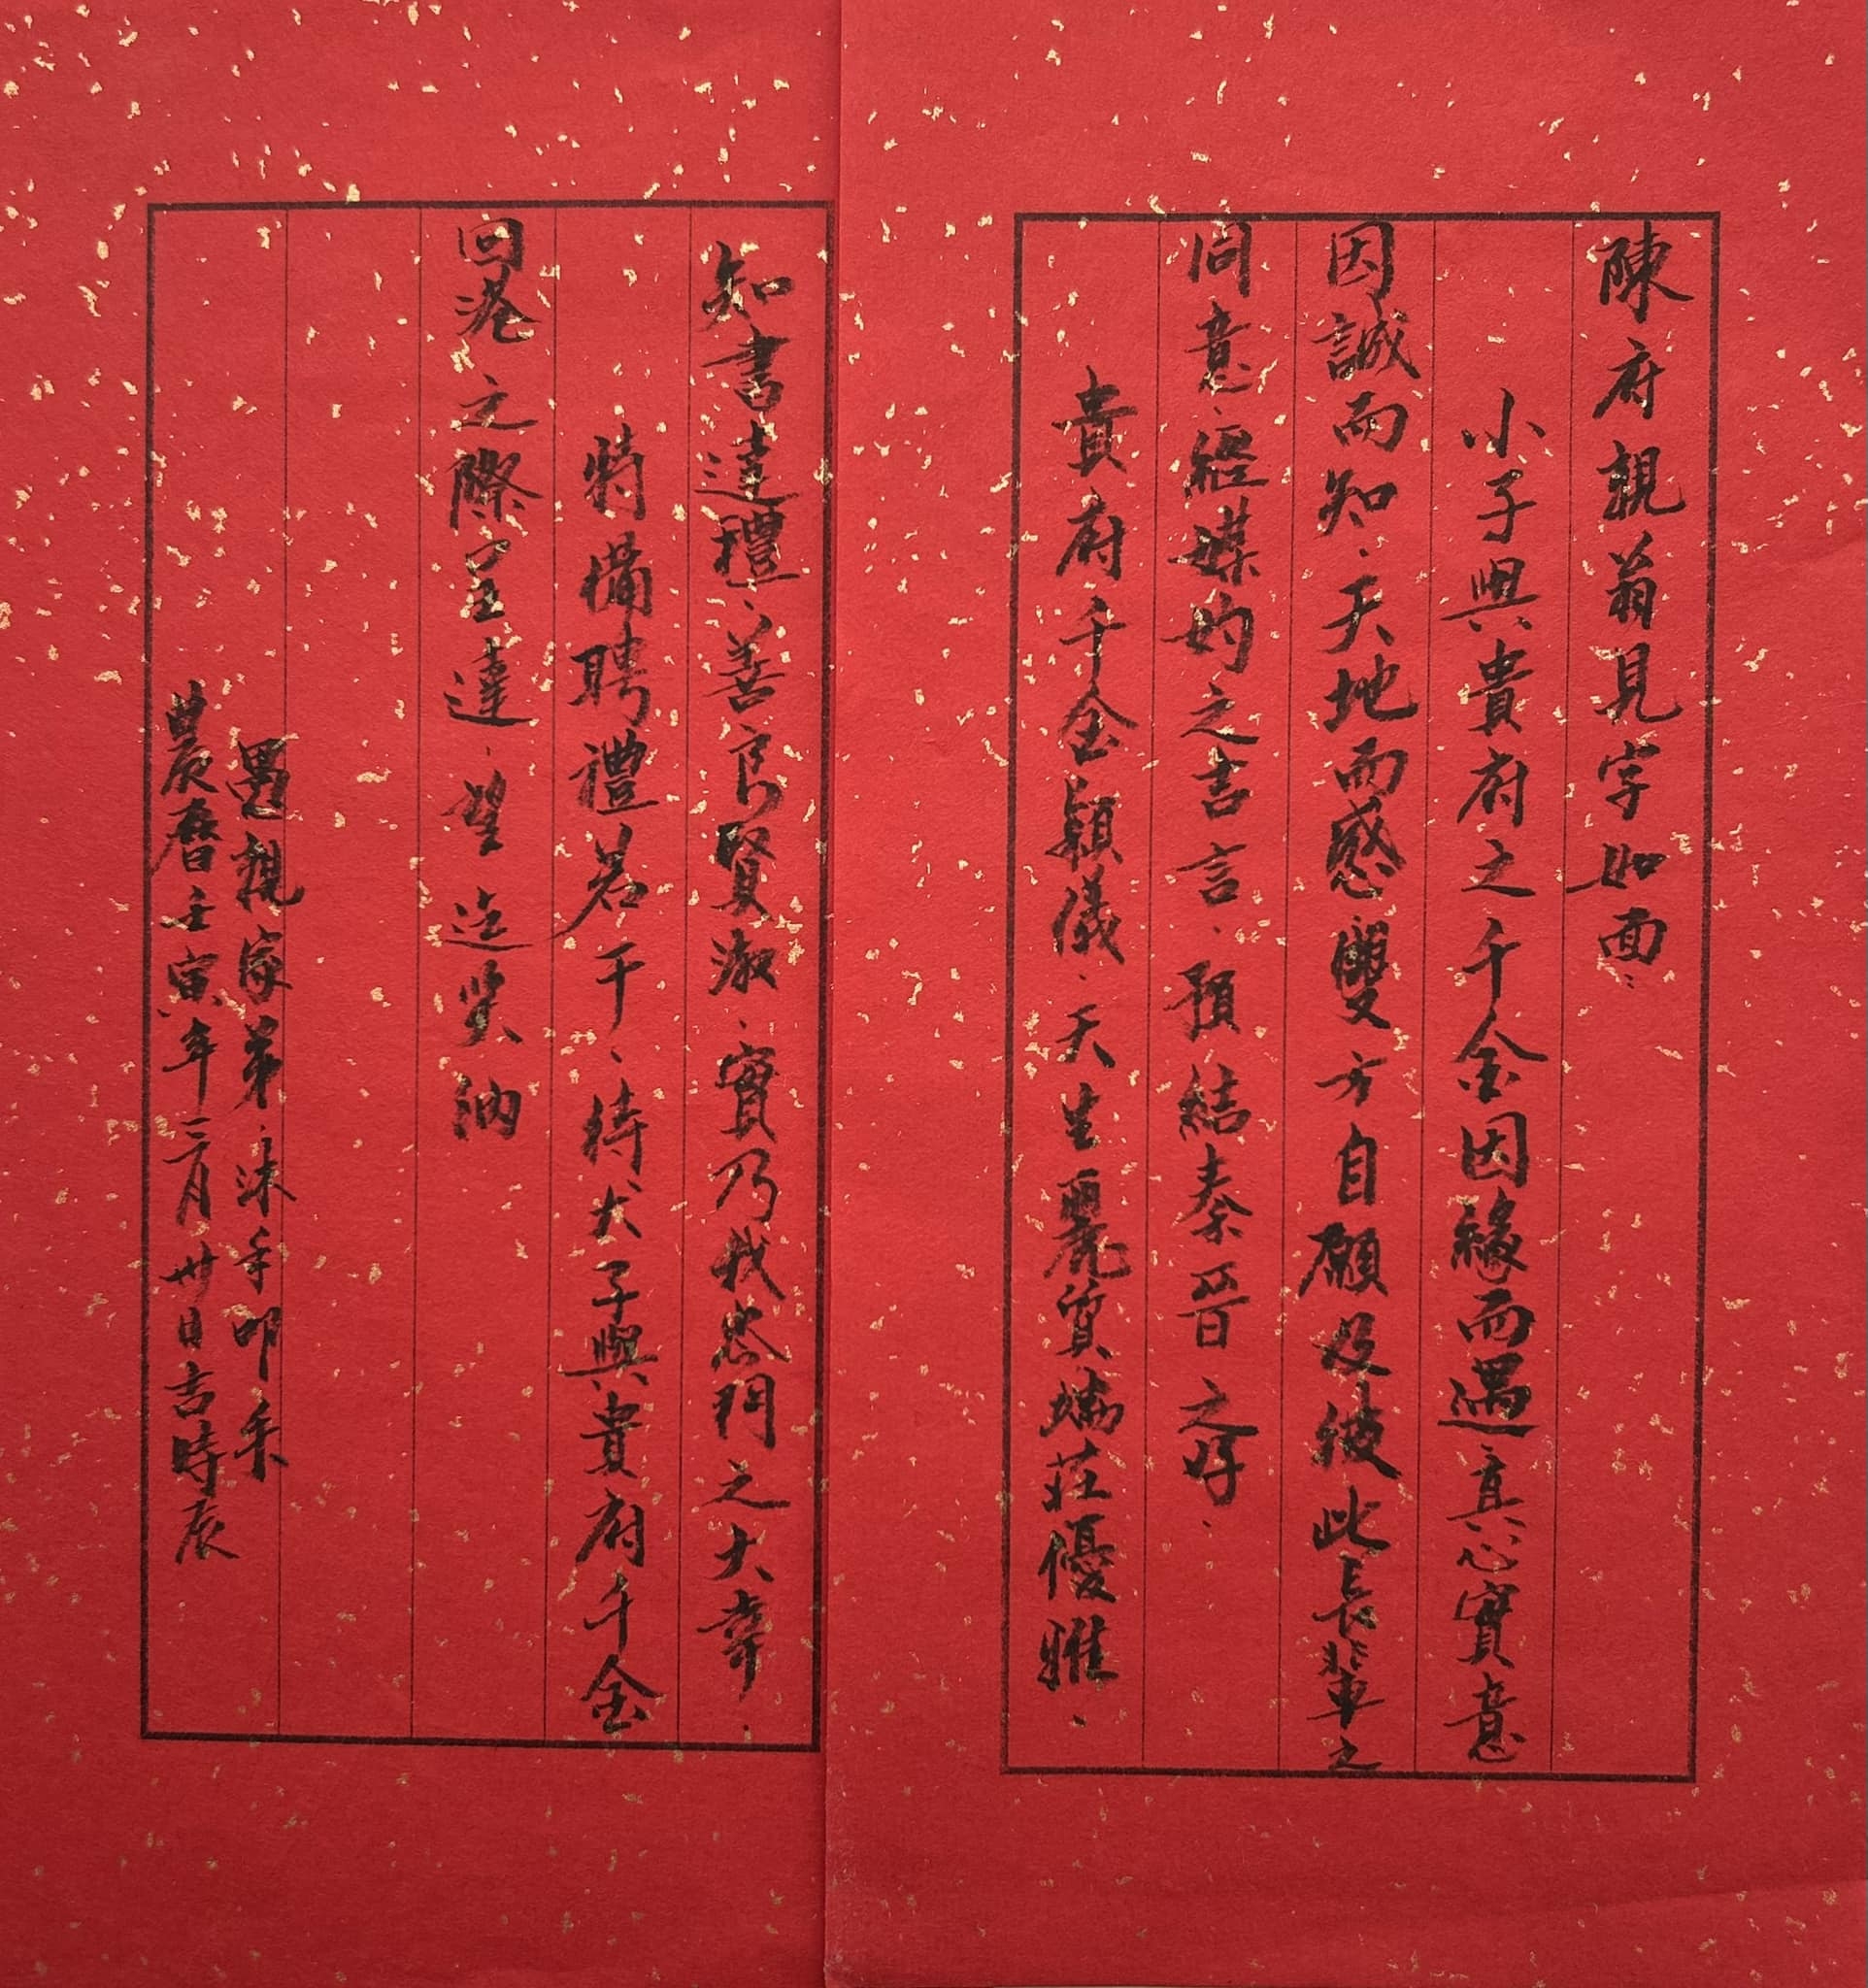 陳府親翁見字如面：
小子與貴府之千金因緣而遇真心實意
因誠而知、天地而感雙方自願及彼此長輩之
同意、經媒妁之吉言、預結秦晉之好、
貴府千金穎儀、天生麗質端莊優雅、
知書達禮、善良賢淑、實乃我忝門之大幸、
特備聘禮若干、待犬子與貴府千金
回港之際呈達、望迄笑納
愚親家弟、沐手叩禾
農曆壬寅年三月廿日吉時辰